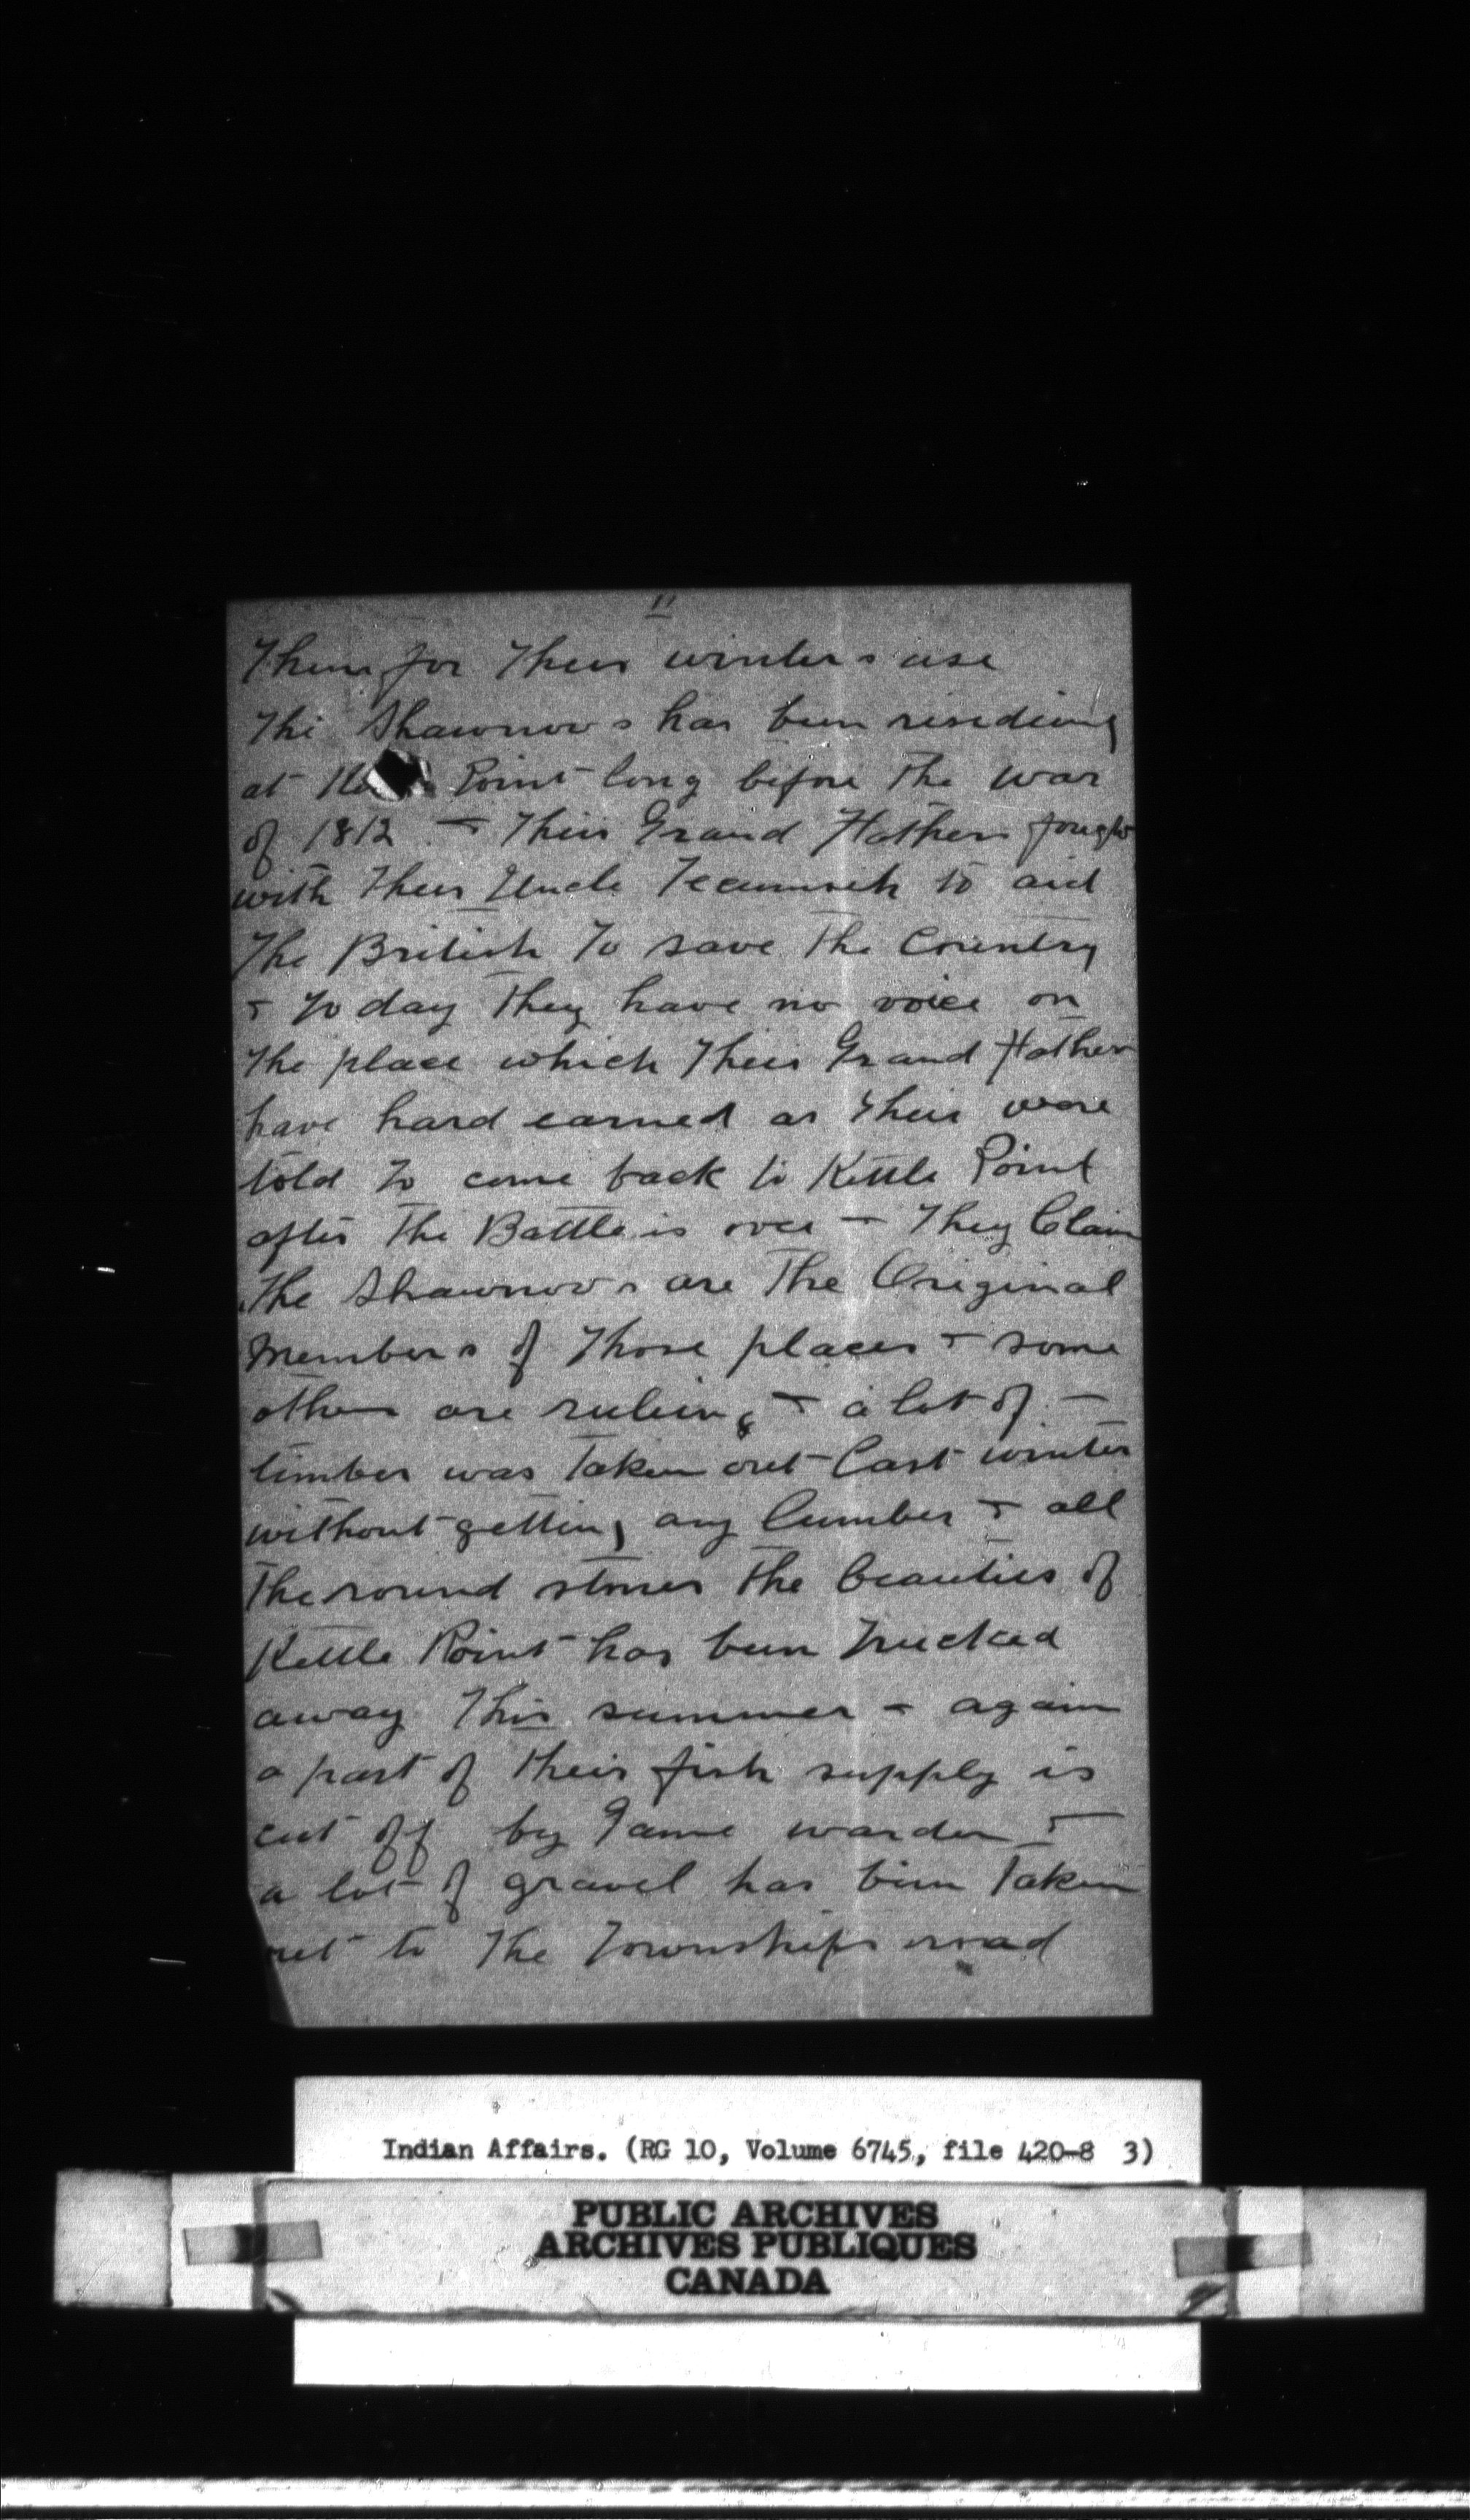 11
them for their winters use
The Shawnows has been resedeing
at Ke Point long before the war
of 1812 + their Grand Fathers fought
with their Uncle Tecumseh to aid
the British to save the Country
+ to day they have no voice on
the place which their Grand Father
have hard earned as their were
told to come back to Kettle Point
after the Battle is over + They Claim
the Shawnows are the Original
members of those places + some
others are ruleing + a lot of -
timber was taken out Last winter
without getting any lumber + all
the round stones the beauties of
Kettle Point has been trucked
away this summer + again
a part of their fish supply is
cut off by Game warden +
a lot of gravel has been taken
out to the Townships road
Indian Affairs. (RG 10, Volume 6745, file 420-8 3)
PUBLIC ARCHIVES
ARCHIVES PUBLIQUES
CANADA